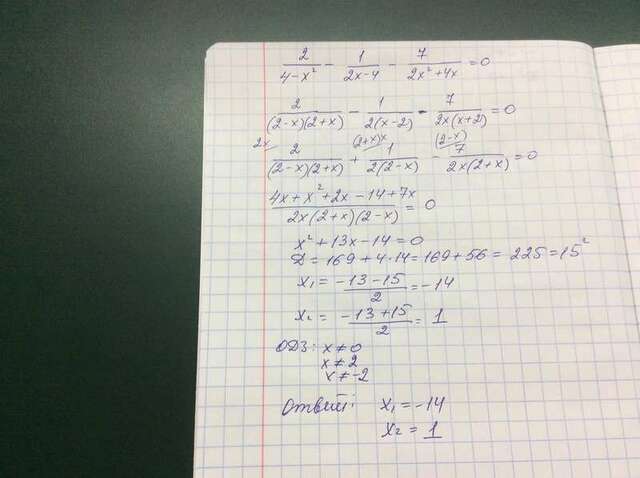 2/(4-x²) - 1/(2x-4) - 7/(2x²+4x) = 0
2/((2-x)(2+x)) - 1/(2(x-2)) - 7/(2x(x+2)) = 0
2x (2+x)x (2-x)
2/((2-x)(2+x)) + 1/(2(2-x)) - 7/(2x(2+x)) = 0
(4x+x²+2x-14+7x)/(2x(2+x)(2-x)) = 0
x²+13x-14=0
D=169+4·14=169+56=225=15²
x₁= (-13-15)/2 = -14
x₂= (-13+15)/2 = 1
ОДЗ: x≠0
x≠2
x≠-2
Ответ: x₁=-14
x₂=1